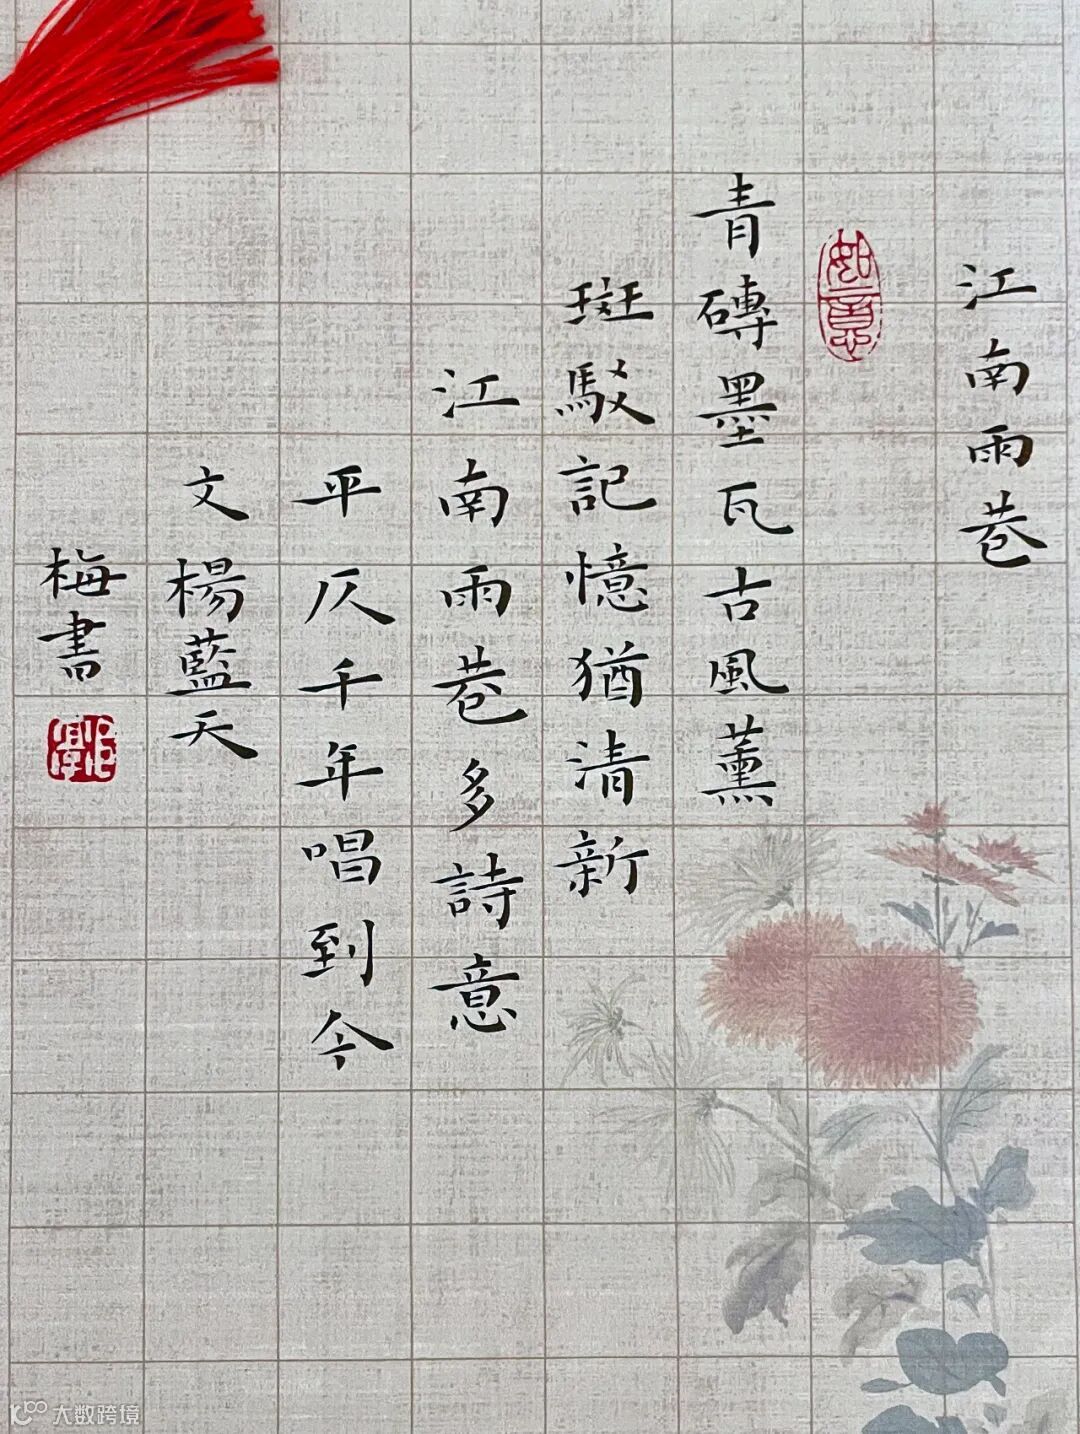 江南雨巷
如意
青磚墨瓦古風薰
斑駁記憶猶清新
江南雨巷多詩意
平仄千年唱到今
文楊藍天
梅書
大数跨境